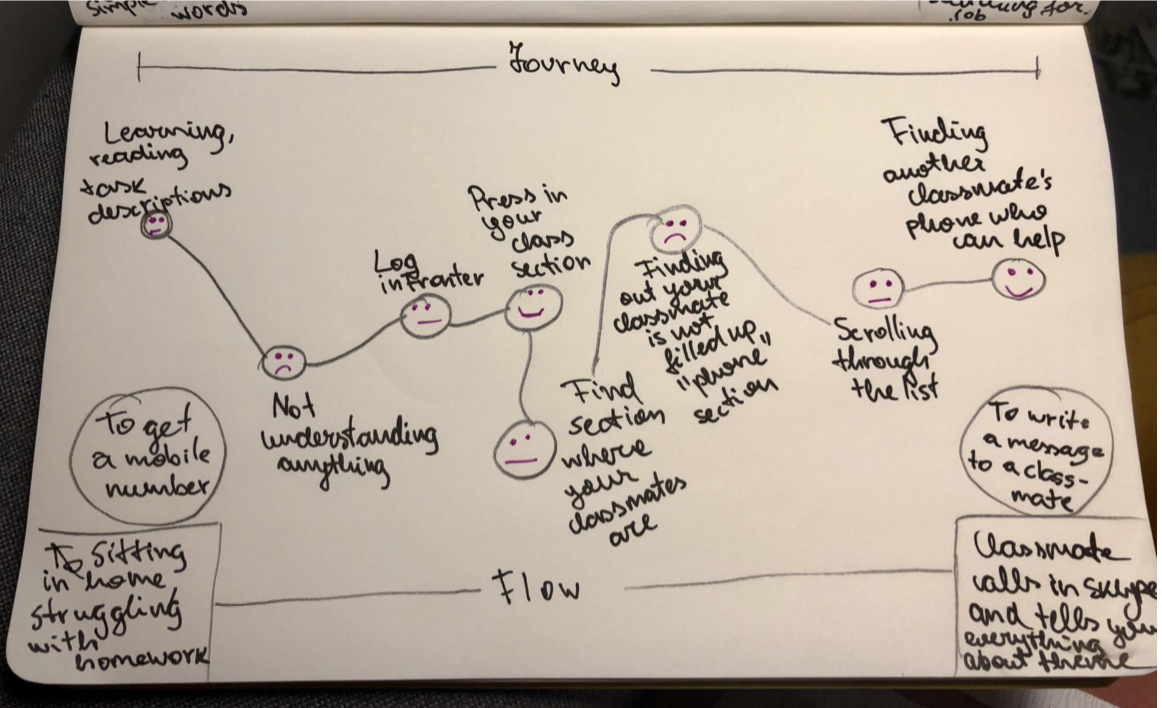 Simple
words
for
job
Journey
Learning,
reading
task
descriptions
Not
understanding
anything
Log
in Fronter
Press in
your
class
section
Find
section
where
your
classmates
are
Finding
out your
classmate
is not
filled up
"phone"
section
Scrolling
through
the list
Finding
another
classmate's
phone who
can help
To get
a mobile
number
To write
a message
to a class-
mate
Sitting
in home
struggling
with
homework
Flow
Classmate
calls in skype
and tells you
everything
about theme